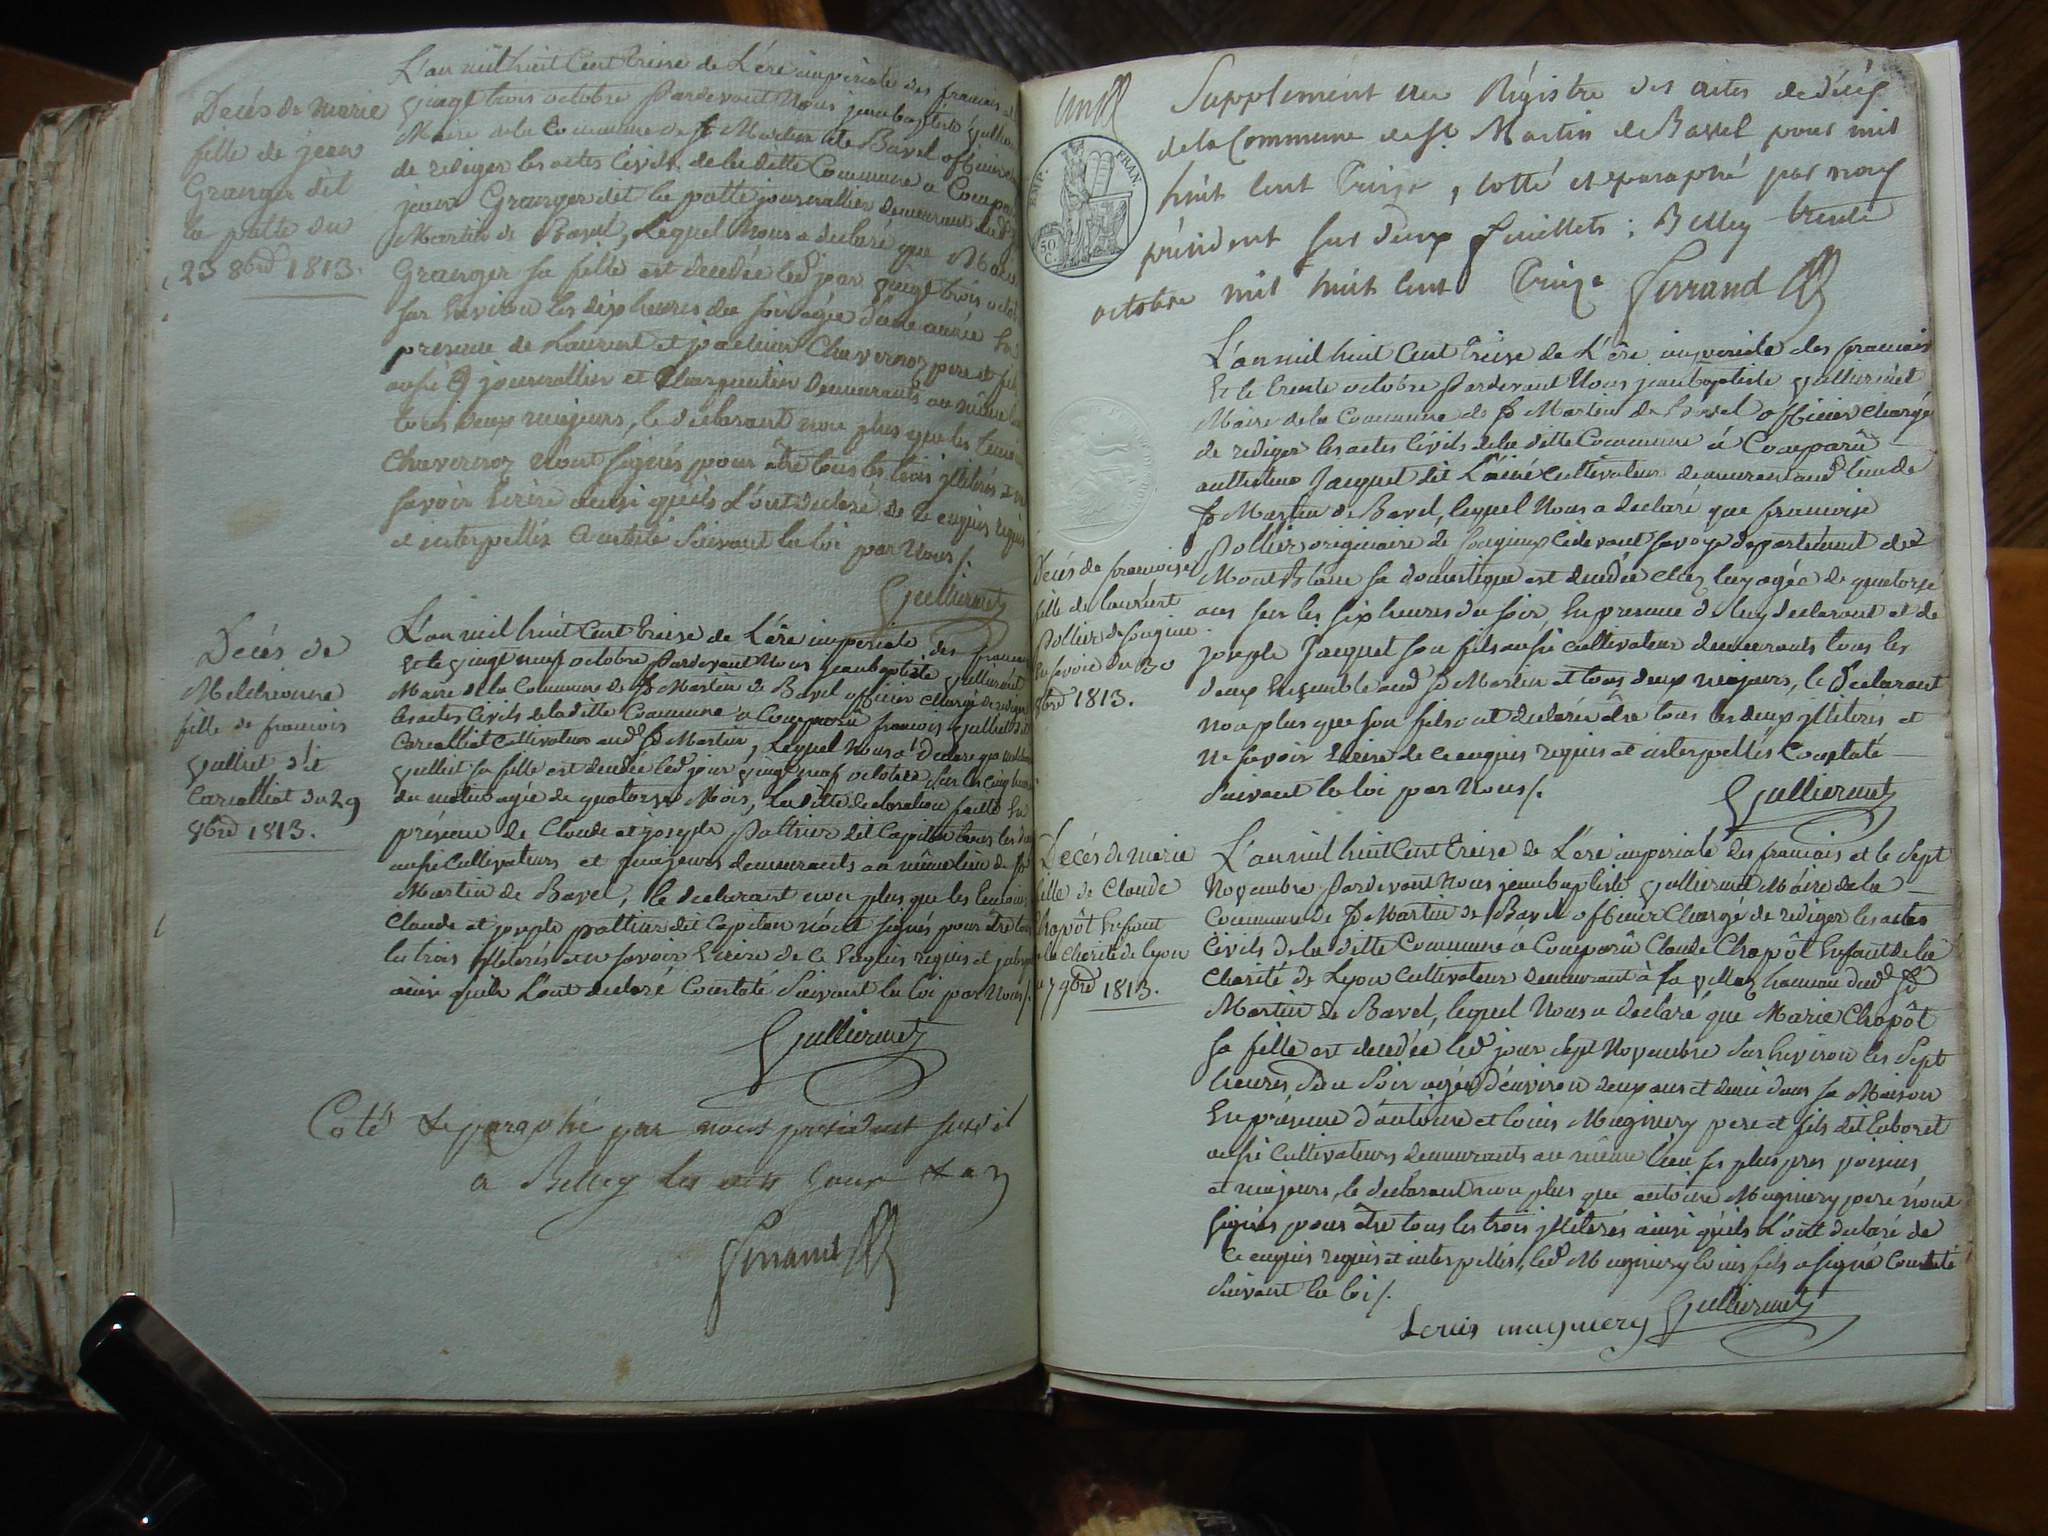 Decés de marie
fille de jean
Granger dit
la patte du
23 8bre 1813.
L'an mil huit Cent treise de L'ére impériale des francais et
vingt trois octobre Pardevant Nous jeanbaptiste Gullier
Maire de la Commune de St Martin de Bavel officier
de rediger les actes Civils de la ditte Commune a Compa
jean Granger dit la patte journallier demeurant aud
Martin de Bavel, Lequel Nous a declaré que Marie
Granger sa fille est decedée led jour vingt trois octob
sur Environ les dix heures du soir agée d'une année En
presence de Laurent et joachim Chavernoz pere et fils
aussi journallier et Charpentier Demeurants au même
tous deux majeurs, le declarant non plus que les temoins
Chavernoz n'ont signés pour être tous les trois jlliterés et ne
savoir Ecrire ainsi qu'ils L'ont declaré de ce enquis requis
et interpellés Constaté Suivant la loi par Nous/.
Gulliermet
Decés de
Melchionne
fille de francois
Gulliet dit
Carcalliat du 29
8bre 1813.
L'an mil huit Cent treise de L'ére imperiale des francais
Et le vingt neuf octobre Pardevant Nous jeanbaptiste Gulliermet
Maire de la Commune de St Martin de Bavel officier Chargé de rediger
les actes Civils de la ditte Commune a Comparû francois Gulliet dit
Carcalliat Cultivateur aud St Martin, Lequel Nous a Declaré que
Gulliet sa fille est decedée led jour vingt neuf octobre sur les Cinq heures
du matin agée de quatorze Mois, La ditte declaration faitte En
présence de Claude et joseph Pattier dit Capitan tous les deux
aussi Cultivateurs et majeurs demeurants au même lieu de St
Martin de Bavel, le declarant non plus que les temoins
Claude et joseph pattier dit Capitan n'ont signés pour être tous
les trois jlliterés et ne savoir Ecrire de ce Enquis requis et
ainsi qu'ils L'ont declaré Constaté Suivant la loi par Nous/.
Gulliermet
Coté & paraphé par nous président susdit
a Belley les mois jour & an
Ferrand
Supplément au Régistre des actes de décès
de la Commune de St. Martin de Bavel pour mil
huit cent Treize, cotté et paraphé par nous
président sur deux feuillets; Belley trente
octobre mil huit cent Treize Ferrand
EMP. FRAN.
50 C.
L'an mil huit Cent treise de L'ére imperiale des francais
Et le trente octobre Pardevant Nous jeanbaptiste Gulliermet
Maire de la Commune de St Martin de Bavel officier Chargé
de rediger les actes Civils de la ditte Commune a Comparû
anthelme Jacquet dit L'ainé Cultivateur demeurant aud lieu de
St Martin de Bavel, lequel Nous a declaré que francoise
Pollier originaire de Songieux Cidevant savoye departement du
Mont Blanc sa domestique est decedée chez luy agée de quatorze
ans sur les six heures du soir, En presence de luy declarant et de
joseph Jacquet son fils aussi cultivateur demeurants tous les
deux Ensemble aud St Martin et tous deux majeurs, le Declarant
non plus que son fils ont declarés être tous les deux jlliterés et
ne savoir Ecrire de ce enquis requis et interpellés Constaté
Suivant la loi par Nous/.
Gulliermet
Decés de francoise
fille de laurent
Pollier de Songieu
En savoie du 30
8bre 1813.
Decés de marie
fille de Claude
Chapôt Enfant
de la Charité de Lyon
du 7 9bre 1813.
L'an mil huit Cent treise de L'ére imperiale des francais et le sept
Novembre Pardevant Nous jeanbaptiste Gulliermet Maire de la
Commune de St Martin de Bavel officier Chargé de rediger les actes
Civils de la ditte Commune a Comparû Claude Chapôt Enfant de la
Charité de Lyon Cultivateur Demeurant à la Vellaz hameau dud St
Martin de Bavel, lequel Nous a declaré que Marie Chapôt
sa fille est decedée led jour sept Novembre sur Environ les Sept
heures du Soir agée d'environ deux ans et demi dans sa Maison
En présence d'antoine et Louis Mugniery pere et fils dit Laboret
aussi Cultivateurs demeurants au même lieu ses plus pres voisins
et majeurs, le declarant non plus que antoine Mugniery pere n'ont
signés pour être tous les trois jlliterés ainsi qu'ils L'ont declaré de
Ce enquis requis et interpellés, led Mugniery Louis fils a signé Constaté
Suivant la loi/.
Louis mugniery Gulliermet